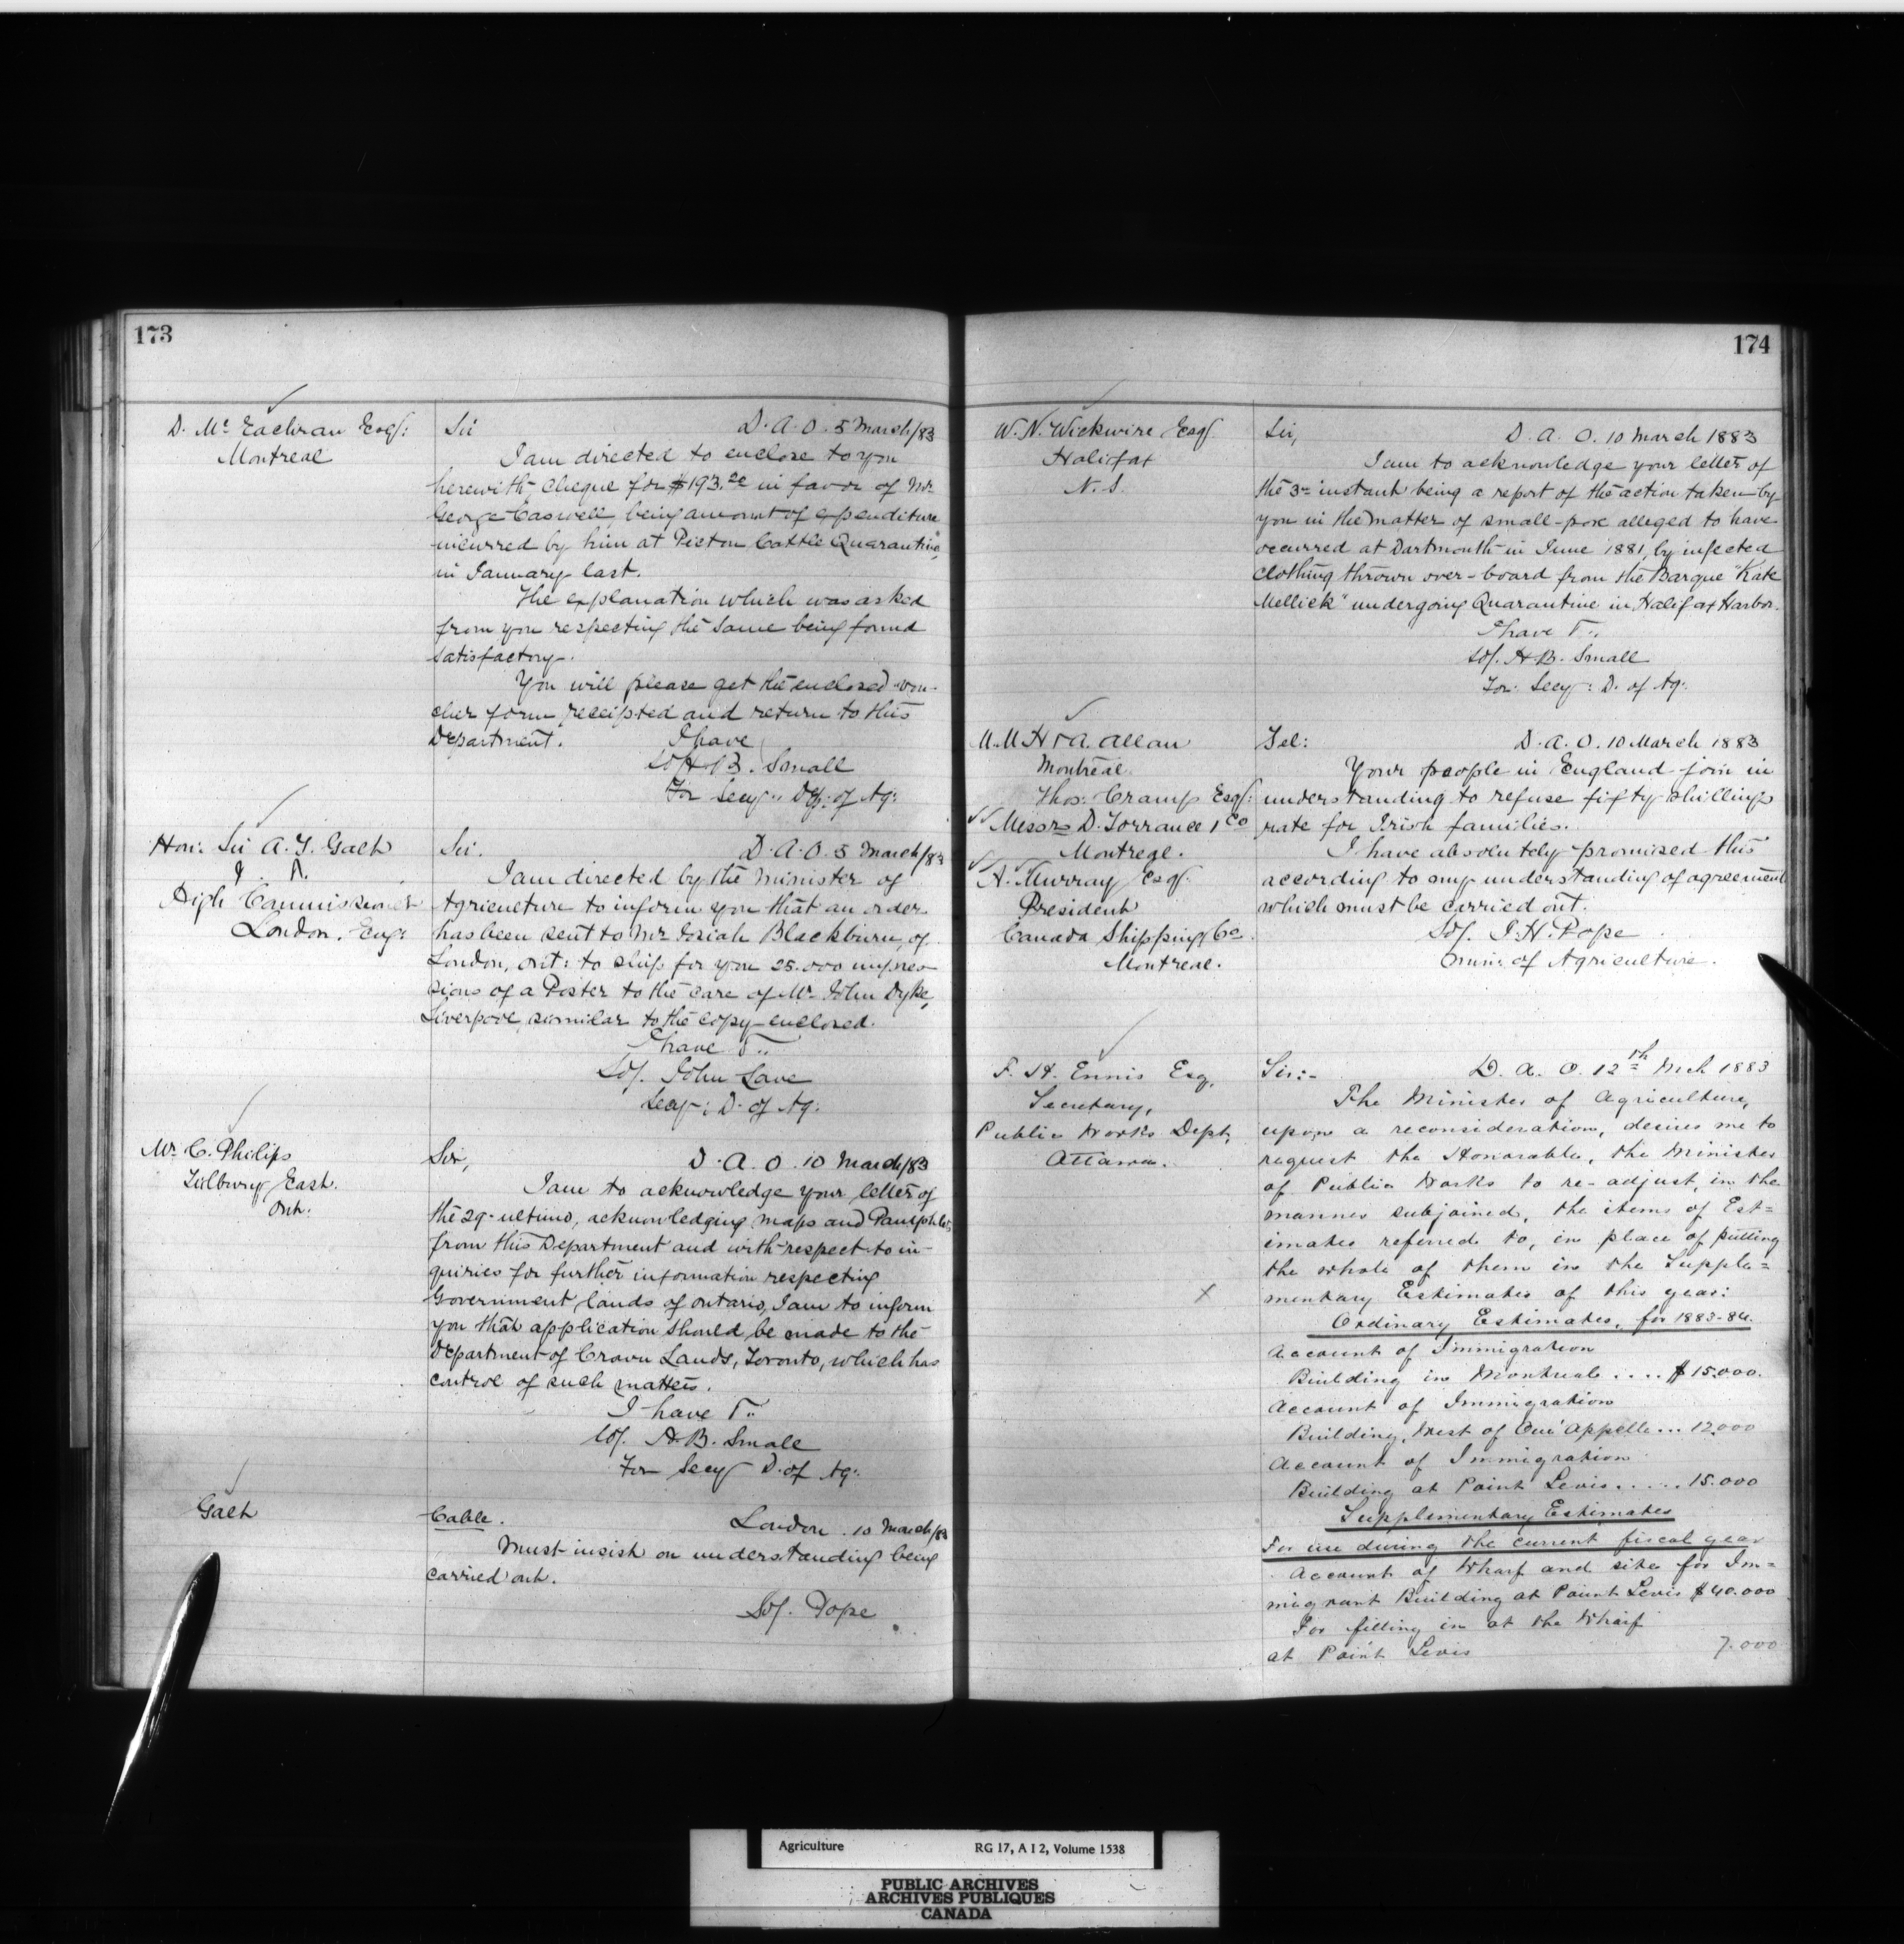 173
D. Mc Eachran Esq:
Montreal
Sir D. A. O. 5 March/83
I am directed to enclose to you
herewith cheque for $193. in favor of Mr
George Caswell, being amount of expenditure
incurred by him at Pictou Cattle Quarantine,
in January last.
The explanation which was asked
from you respecting the same being found
satisfactory.
You will please get the enclosed vou-
cher form receipted and return to this
Department. I have
H B. Small
For Secy: Dep: of Ag:
Hon: Sir A. T. Galt
High Commissioner
London. Eng:
Sir. D. A. O. 5 March/83
I am directed by the Minister of
Agriculture to inform you that an order
has been sent to Mr Josiah Blackburn, of
London, Ont: to ship for you 25.000 impres
sions of a Poster to the care of Mr John Dyke,
Liverpool, similar to the copy enclosed.
I have
Sd/. John Lowe
Secy: D. of Ag:
Mr C. Philips
Tilbury East.
Ont:
Sir, D. A. O. 10 March/83
I am to acknowledge your letter of
the 29 ultimo, acknowledging maps and Pamphlets
from this Department and with respect to in-
quiries for further information respecting
Government lands of Ontario, I am to inform
you that application should be made to the
Department of Crown Lands, Toronto, which has
control of such matters.
I have
Sd/. H. B. Small
For Secy D. of Ag:
Galt
Cable. London. 10 March/83
Must insist on understanding being
carried out.
Sd/. Pope
174
W. N. Wickwire Esq
Halifax
N. S.
Sir, D. A. O. 10 March 1883
I am to acknowledge your letter of
the 3rd instant being a report of the action taken by
you in the matter of small-pox alleged to have
occurred at Dartmouth in June 1881, by infected
clothing thrown over-board from the Barque "Kate
Mellick" undergoing Quarantine in Halifax Harbor.
I have
Sd/. H B. Small
For: Secy: D. of Ag:
M. M H & A. Allan
Montreal.
Thos: Cramp Esq:
Messrs D. Torrance & Co
Montreal.
A. Murray Esq
President
Canada Shipping Co.
Montreal.
Tel: D. A. O. 10 March 1883
Your people in England join in
understanding to refuse fifty shillings
rate for Irish families.
I have absolutely promised this
according to my understanding of agreement
which must be carried out.
Sd/. J. H. Pope
Min: of Agriculture.
F. H. Ennis Esq,
Secretary,
Public Works Dept,
Ottawa.
Sir:- D. A. O. 12th Mch 1883
The Minister of Agriculture,
upon a reconsideration, desires me to
request the Honorable, the Minister
of Public Works to re-adjust, in the
manner subjoined, the items of Est=
imates referred to, in place of putting
the whole of them in the Supple=
x mentary Estimates of this year:
Ordinary Estimates, for 1883-84.
Account of Immigration
Building in Montreal .... $15.000.
Account of Immigration
Building, West of Qu'Appelle ... 12.000
Account of Immigration
Building at Point Levis ..... 15.000
Supplementary Estimates
For use during the current fiscal year
Account of Wharf and site for Im=
migrant Building at Point Levis $40.000
For filling in at the Wharf
at Point Levis 7.000
Agriculture RG 17, A I 2, Volume 1538
PUBLIC ARCHIVES
ARCHIVES PUBLIQUES
CANADA